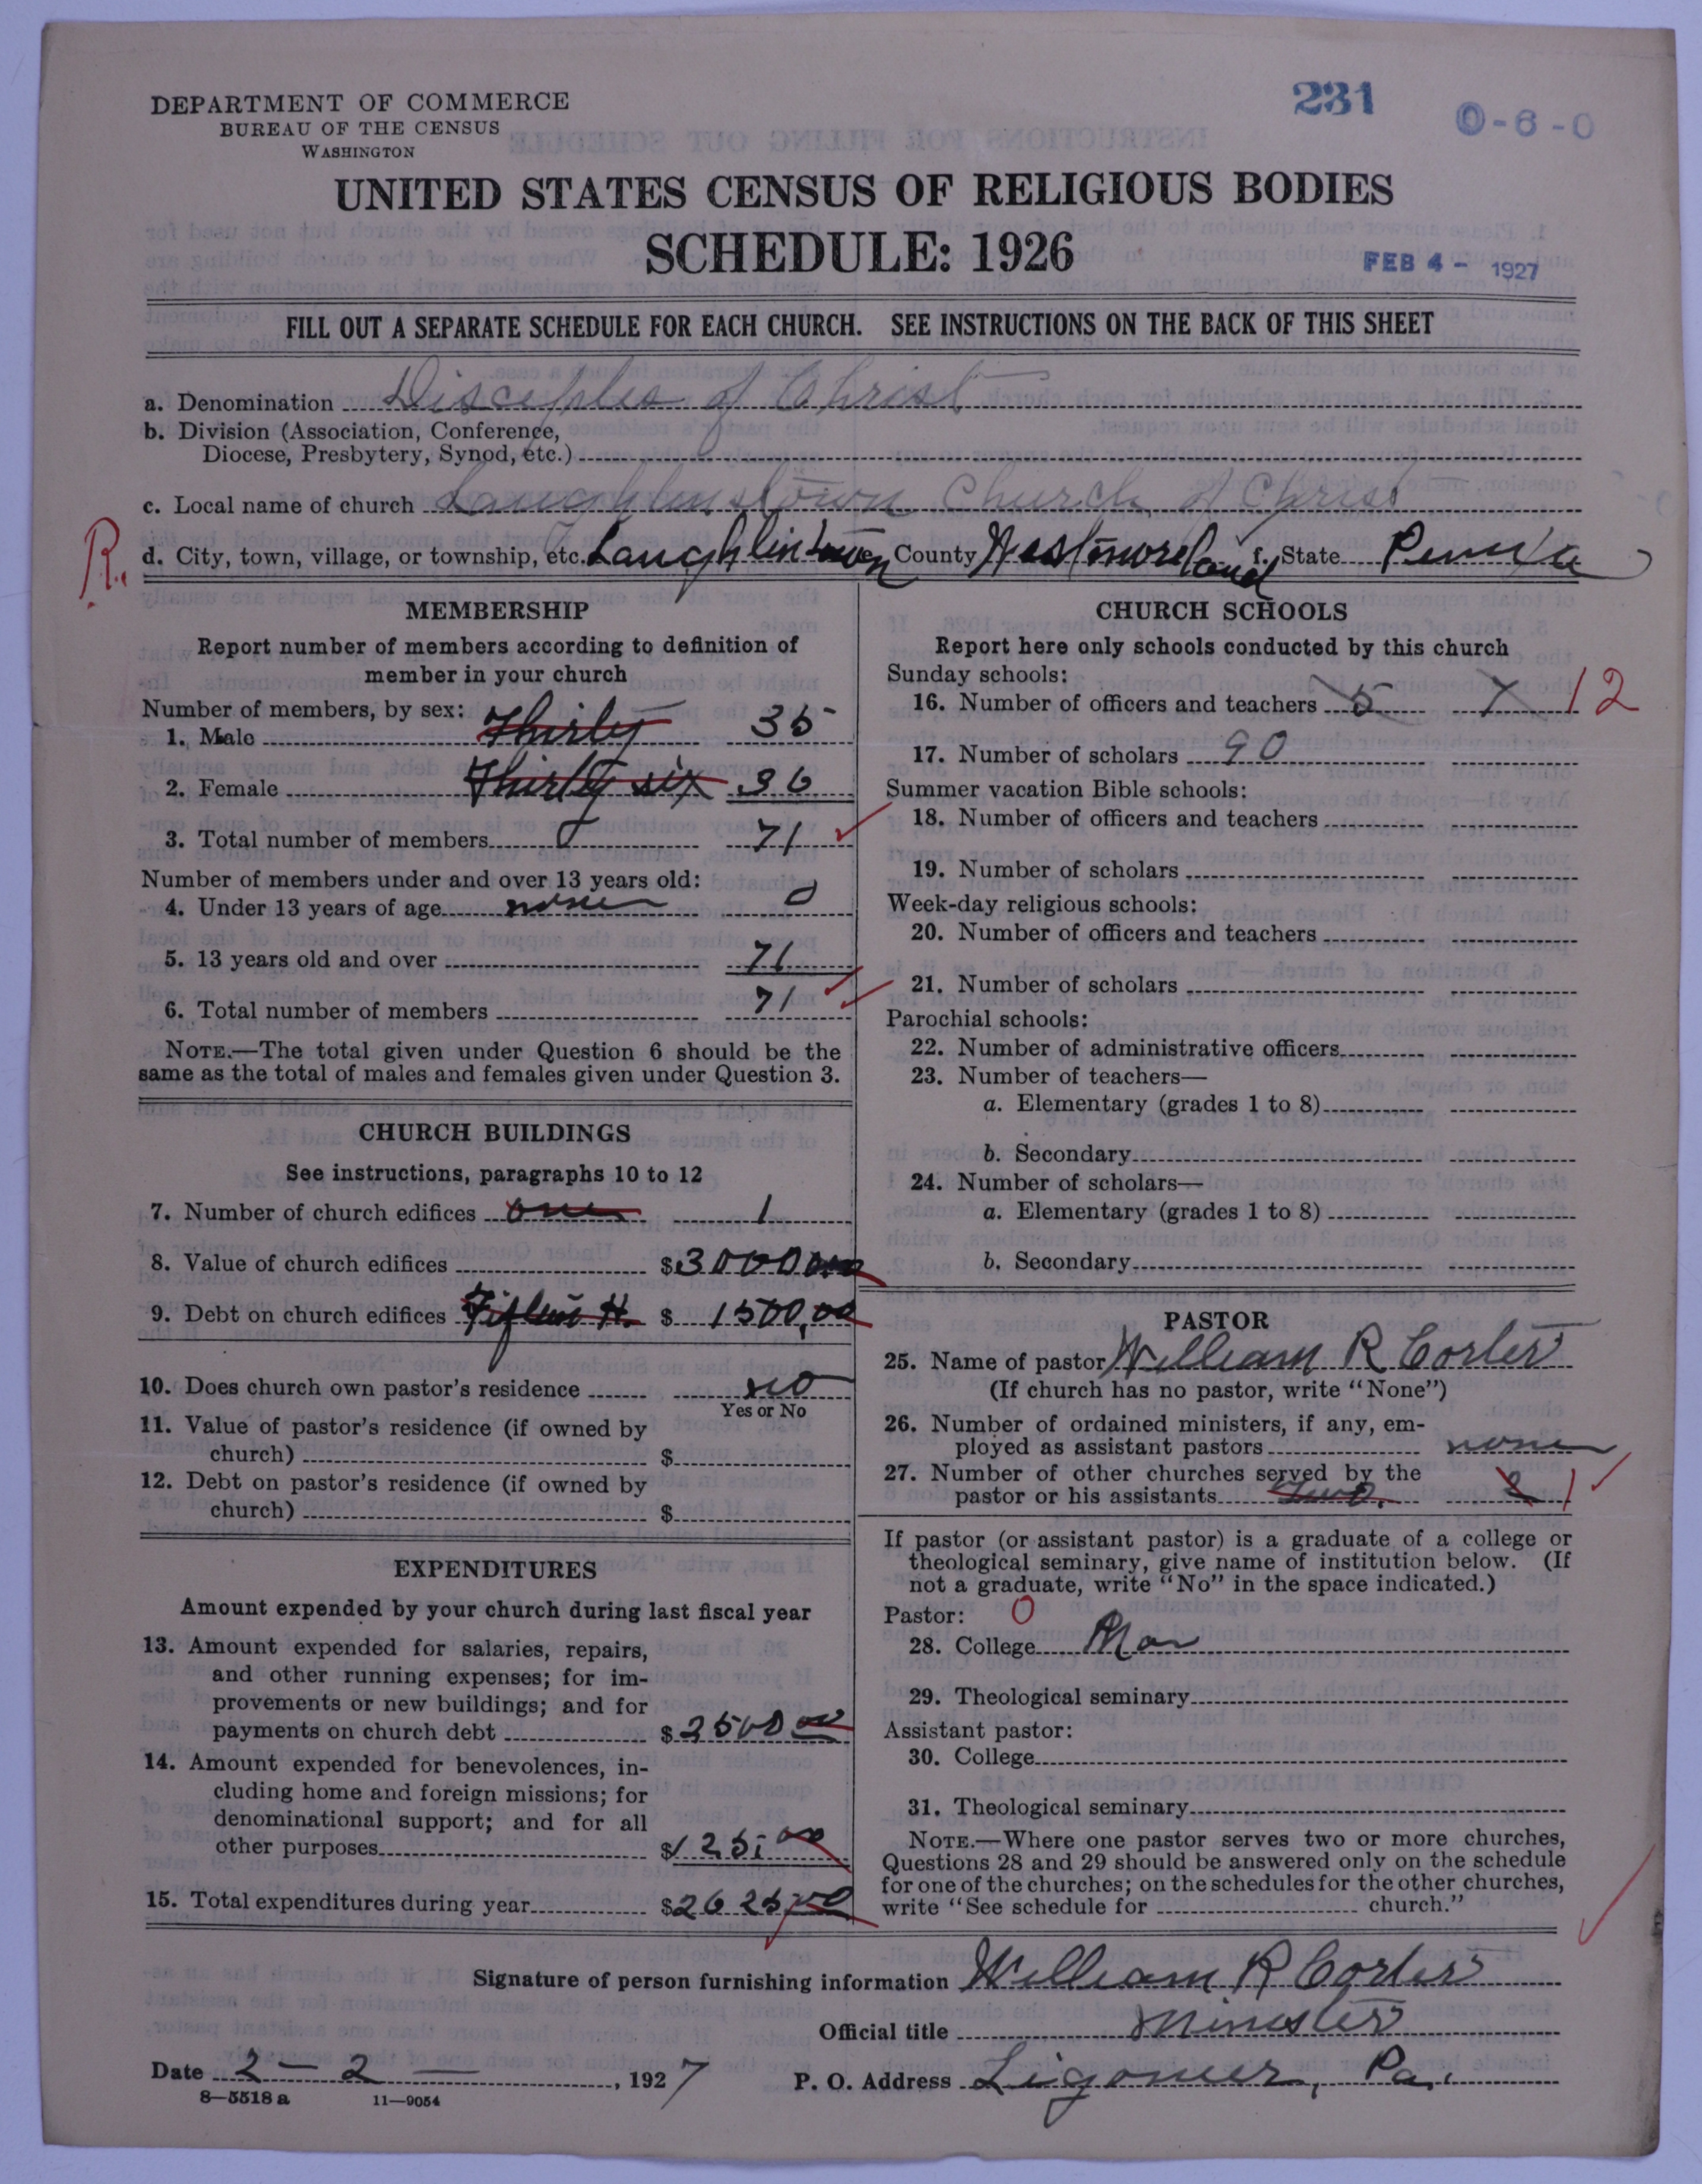 DEPARTMENT OF COMMERCE
BUREAU OF THE CENSUS
WASHINGTON
231
0-6-0
UNITED STATES CENSUS OF RELIGIOUS BODIES
SCHEDULE: 1926
FEB 4 - 1927
FILL OUT A SEPARATE SCHEDULE FOR EACH CHURCH. SEE INSTRUCTIONS ON THE BACK OF THIS SHEET
a. Denomination Disciples of Christ
b. Division (Association, Conference,
Diocese, Presbytery, Synod, etc.)
c. Local name of church Laughlinstown Church of Christ
R. d. City, town, village, or township, etc. Laughlintown County Westmoreland f. State Penna
MEMBERSHIP
Report number of members according to definition of
member in your church
Number of members, by sex:
1. Male Thirty 35
2. Female Thirty six 36
3. Total number of members 71
Number of members under and over 13 years old:
4. Under 13 years of age none 0
5. 13 years old and over 71
6. Total number of members 71
NOTE.—The total given under Question 6 should be the
same as the total of males and females given under Question 3.
CHURCH BUILDINGS
See instructions, paragraphs 10 to 12
7. Number of church edifices one 1
8. Value of church edifices $3000 0.00
9. Debt on church edifices Fifteen H. $ 1500,00
10. Does church own pastor's residence no
Yes or No
11. Value of pastor's residence (if owned by
church) $
12. Debt on pastor's residence (if owned by
church) $
EXPENDITURES
Amount expended by your church during last fiscal year
13. Amount expended for salaries, repairs,
and other running expenses; for im-
provements or new buildings; and for
payments on church debt $2500 00
14. Amount expended for benevolences, in-
cluding home and foreign missions; for
denominational support; and for all
other purposes $125.00
15. Total expenditures during year $2625.00
CHURCH SCHOOLS
Report here only schools conducted by this church
Sunday schools:
16. Number of officers and teachers 5 7 12
17. Number of scholars 90
Summer vacation Bible schools:
18. Number of officers and teachers
19. Number of scholars
Week-day religious schools:
20. Number of officers and teachers
21. Number of scholars
Parochial schools:
22. Number of administrative officers
23. Number of teachers—
a. Elementary (grades 1 to 8)
b. Secondary
24. Number of scholars—
a. Elementary (grades 1 to 8)
b. Secondary
PASTOR
25. Name of pastor William R Corter
(If church has no pastor, write "None")
26. Number of ordained ministers, if any, em-
ployed as assistant pastors none
27. Number of other churches served by the
pastor or his assistants Two. 2 1
If pastor (or assistant pastor) is a graduate of a college or
theological seminary, give name of institution below. (If
not a graduate, write "No" in the space indicated.)
Pastor: 0
28. College
29. Theological seminary
Assistant pastor:
30. College
31. Theological seminary
NOTE.—Where one pastor serves two or more churches,
Questions 28 and 29 should be answered only on the schedule
for one of the churches; on the schedules for the other churches,
write "See schedule for church."
Signature of person furnishing information William R Corter
Official title Minister
Date 2 - 2 - , 1927
P. O. Address Ligonier, Pa.
8—5518 a 11—9054